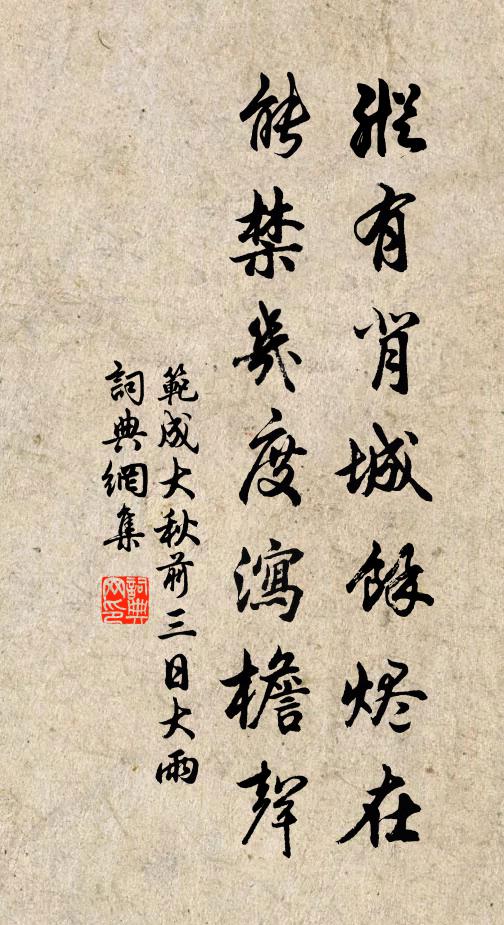 縱有背城餘燼在
能禁幾度瀉檐聲
範成大秋前三日大雨
詞典網集
詞典網印